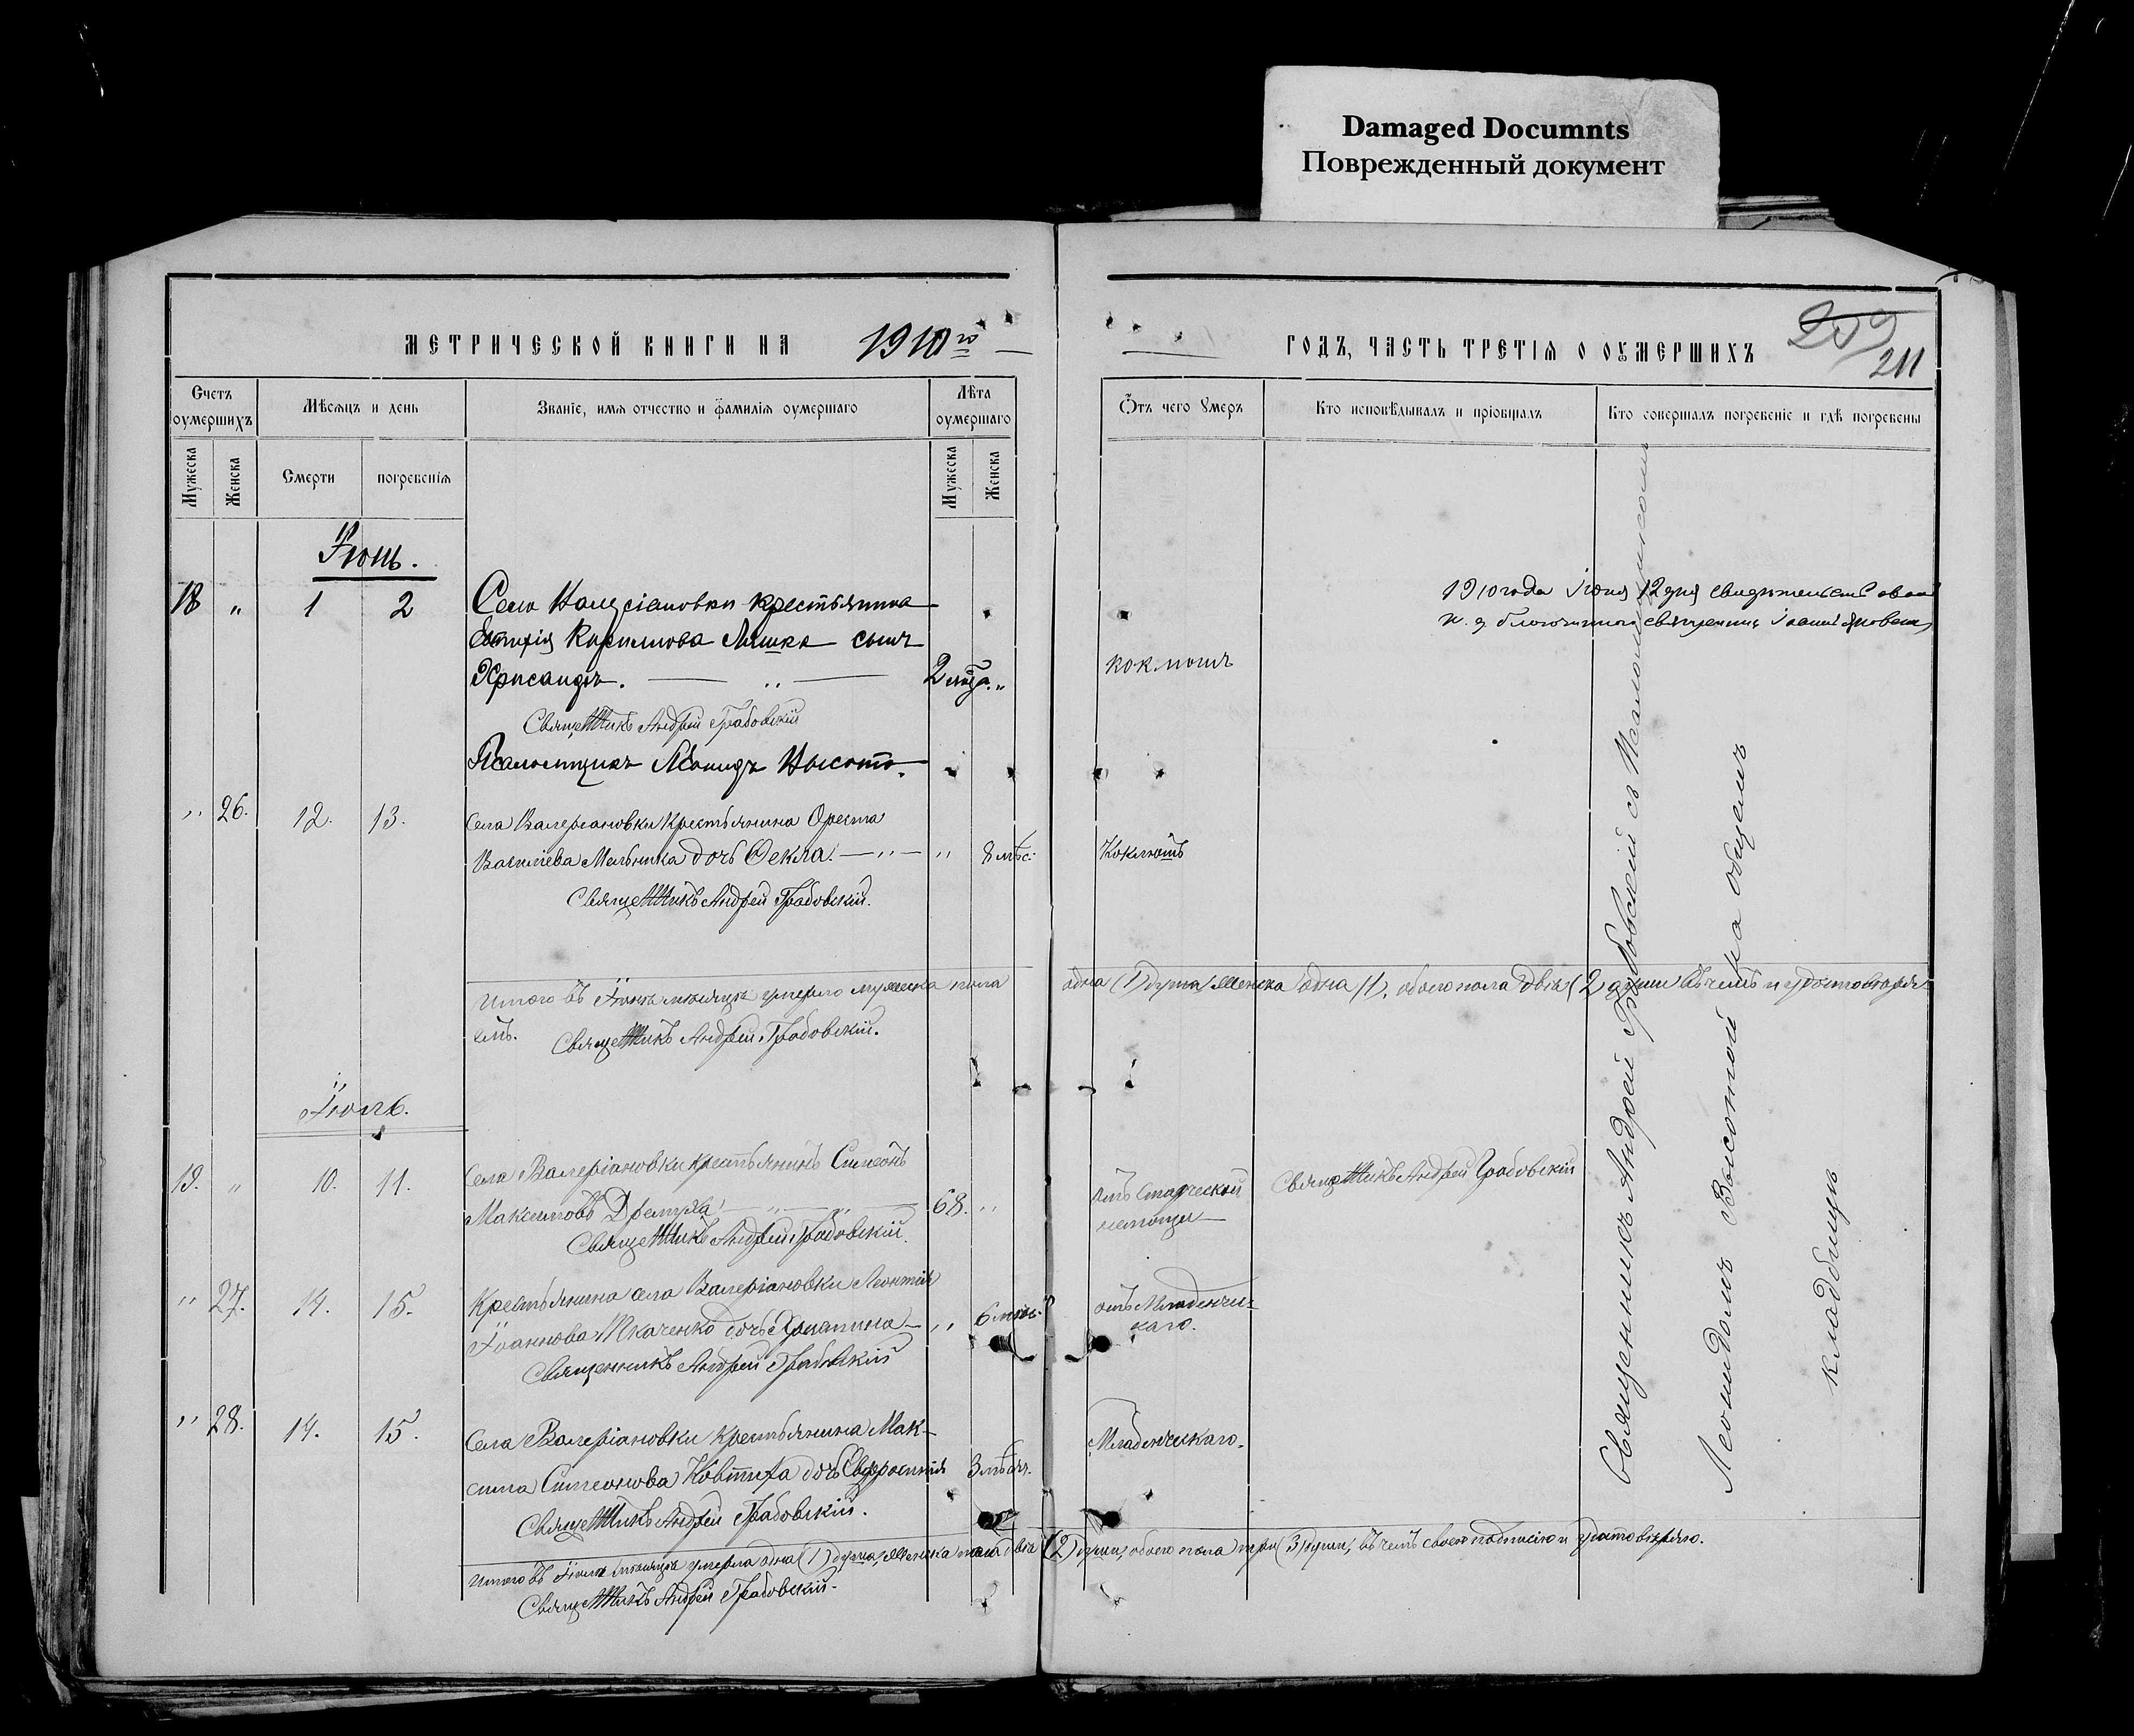 Damaged Documnts
Поврежденный документ
МЕТРИЧЕСКОЙ КНИГИ НА 1910го
Счетъ оумершихъ
Мужеска
Женска
Мѣсяцъ и день
Смерти
погребенія
Званіе, имя отчество и фамилія оумершаго
Лѣта оумершаго
Мужеска
Женска
Іюнь.
18 „ 1 2 Села Валеріановки крестьянина
Кириллова Ляшка сынъ
Хрисанфъ. 2 года. „
Священникъ Андрей Грабовскій
Псаломщикъ Леонидъ Высотт.
„ 26. 12. 13. Села Валеріановки крестьянина Ореста
Василіева Мельника дочь Ѳекла. „ 8 мѣс.
Священникъ Андрей Грабовскій.
Итого въ Іюнѣ мѣсяцѣ умерло мужеска пола
емъ. Священникъ Андрей Грабовскій.
Іюль.
19. „ 10. 11. Села Валеріановки крестьянинъ Симеонъ
Максимовъ Дремуха 68. „
Священникъ Андрей Грабовскій.
„ 27. 14. 15. Крестьянина села Валеріановки Леонтія
Іоаннова Ткаченко дочь „ 6 мѣс.
Священникъ Андрей Грабовскій
„ 28. 14. 15. Села Валеріановки крестьянина Мак-
сима Симеонова Ковтуха дочь Евфросинія 3 мѣсяц.
Священникъ Андрей Грабовскій.
Итого въ Іюлѣ мѣсяцѣ умерла одна (1) душа, женска пола двѣ
Священникъ Андрей Грабовскій.
ГОДЪ, ЧАСТЬ ТРЕТІЯ О ОУМЕРШИХЪ
209
211
Отъ чего умеръ
Кто исповѣдывалъ и пріобщалъ
Кто совершалъ погребеніе и гдѣ погребены
1910 года іюня 12 дня свидѣтельствовалъ
и. д. благочиннаго священникъ Іоаннъ
коклюшъ
Коклюшъ
одна (1) душа, женска одна (1), обоего пола двѣ (2) души въ чемъ и удостовѣря-
Отъ старческой
немощи
Священникъ Андрей Грабовскій
отъ Младенчес-
каго.
Младенческаго.
(2) души, обоего пола три (3) души, въ чемъ своею подписью и удостовѣряю.
Священникъ Андрей Грабовскій съ Псаломщикомъ
Леонидомъ Высотой на общемъ
кладбищѣ